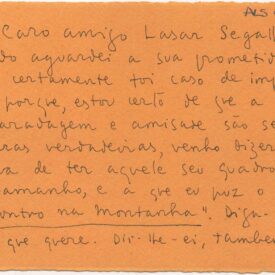 ALS
Caro amigo Lasar Segall
do aguardei a sua prometid
certamente foi caso de imp
porque, estou certo de que a
aradagem e amizade são se
ras verdadeiras, venho dizer
va de ter aquele seu quadro
amanho, e a que eu puz o
ontro na Montanha". Diga-
que quere. Dir-lhe-ei, também